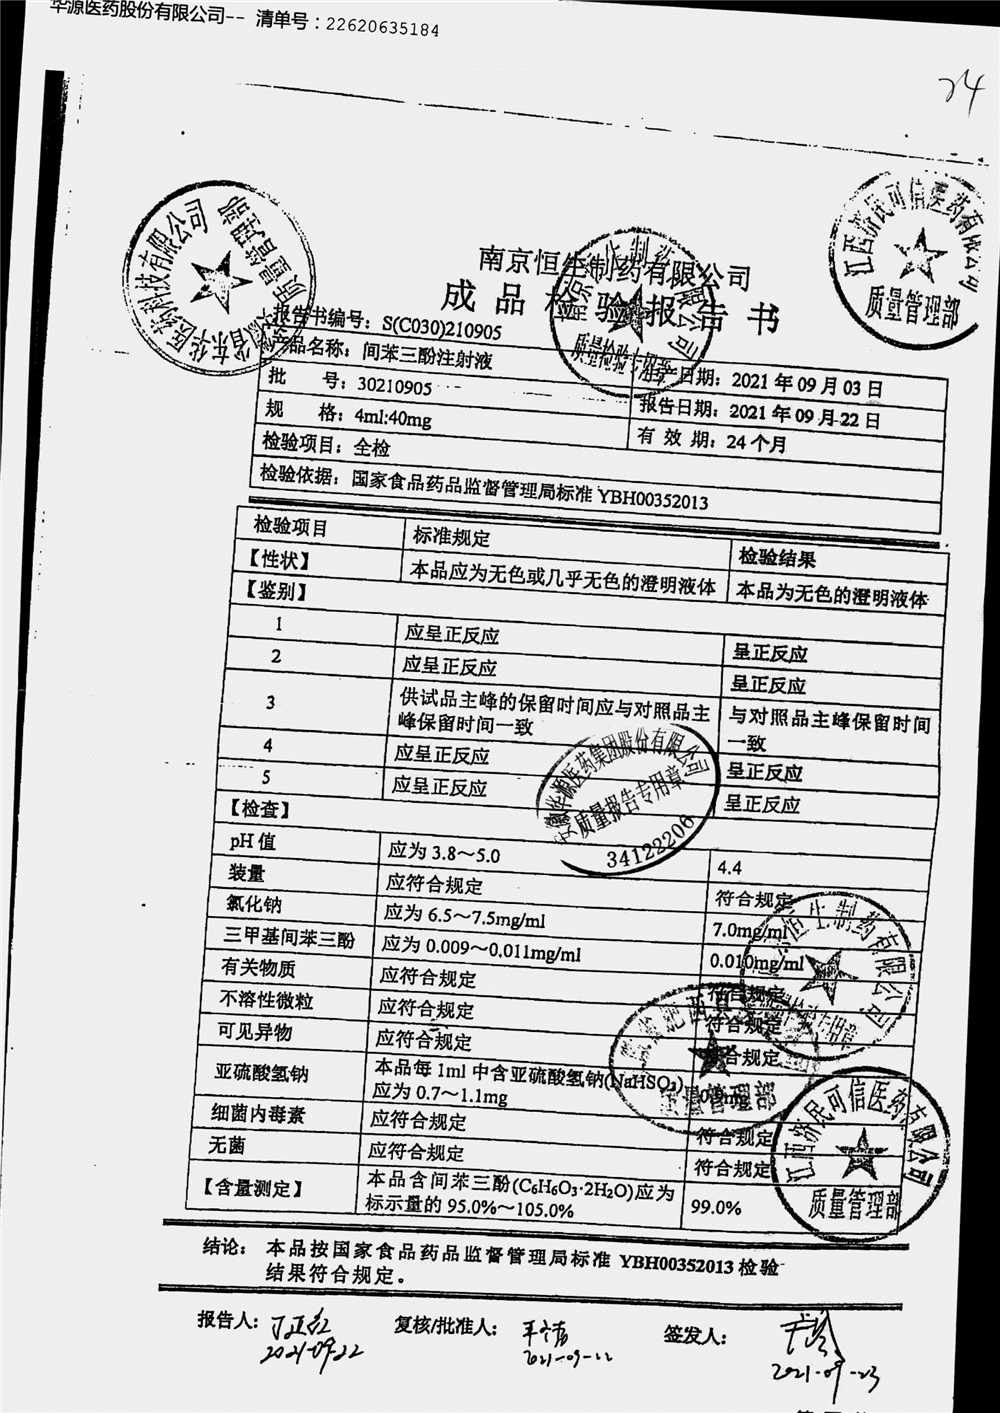 华源医药股份有限公司-- 清单号：22620635184
24
南京恒生制药有限公司
成品检验报告书
报告书编号：S(C030)210905
产品名称：间苯三酚注射液
日期：2021年09月03日
批 号：30210905
报告日期：2021年09月22日
规 格：4ml:40mg
有 效 期：24个月
检验项目：全检
检验依据：国家食品药品监督管理局标准 YBH00352013
检验项目 标准规定 检验结果
【性状】 本品应为无色或几乎无色的澄明液体 本品为无色的澄明液体
【鉴别】
1 应呈正反应 呈正反应
2 应呈正反应 呈正反应
3 供试品主峰的保留时间应与对照品主峰保留时间一致 与对照品主峰保留时间一致
4 应呈正反应 呈正反应
5 应呈正反应 呈正反应
【检查】
pH值 应为 3.8～5.0 4.4
装量 应符合规定 符合规定
氯化钠 应为 6.5～7.5mg/ml 7.0mg/ml
三甲基间苯三酚 应为 0.009～0.011mg/ml 0.010mg/ml
有关物质 应符合规定 符合规定
不溶性微粒 应符合规定 符合规定
可见异物 应符合规定 符合规定
亚硫酸氢钠 本品每 1ml 中含亚硫酸氢钠(NaHSO₃)应为 0.7～1.1mg
细菌内毒素 应符合规定 符合规定
无菌 应符合规定 符合规定
【含量测定】 本品含间苯三酚(C₆H₆O₃·2H₂O)应为标示量的 95.0%～105.0% 99.0%
结论： 本品按国家食品药品监督管理局标准 YBH00352013 检验
结果符合规定。
报告人： 复核/批准人： 签发人：
2021-09-22 2021-09-22 2021-09-23
江西济民可信医药有限公司
质量管理部
南京恒生制药有限公司
质量检验专用章
华源医药集团股份有限公司
质量报告专用章
34122206
恒生制药有限公司
质量管理部
江西济民可信医药有限公司
质量管理部